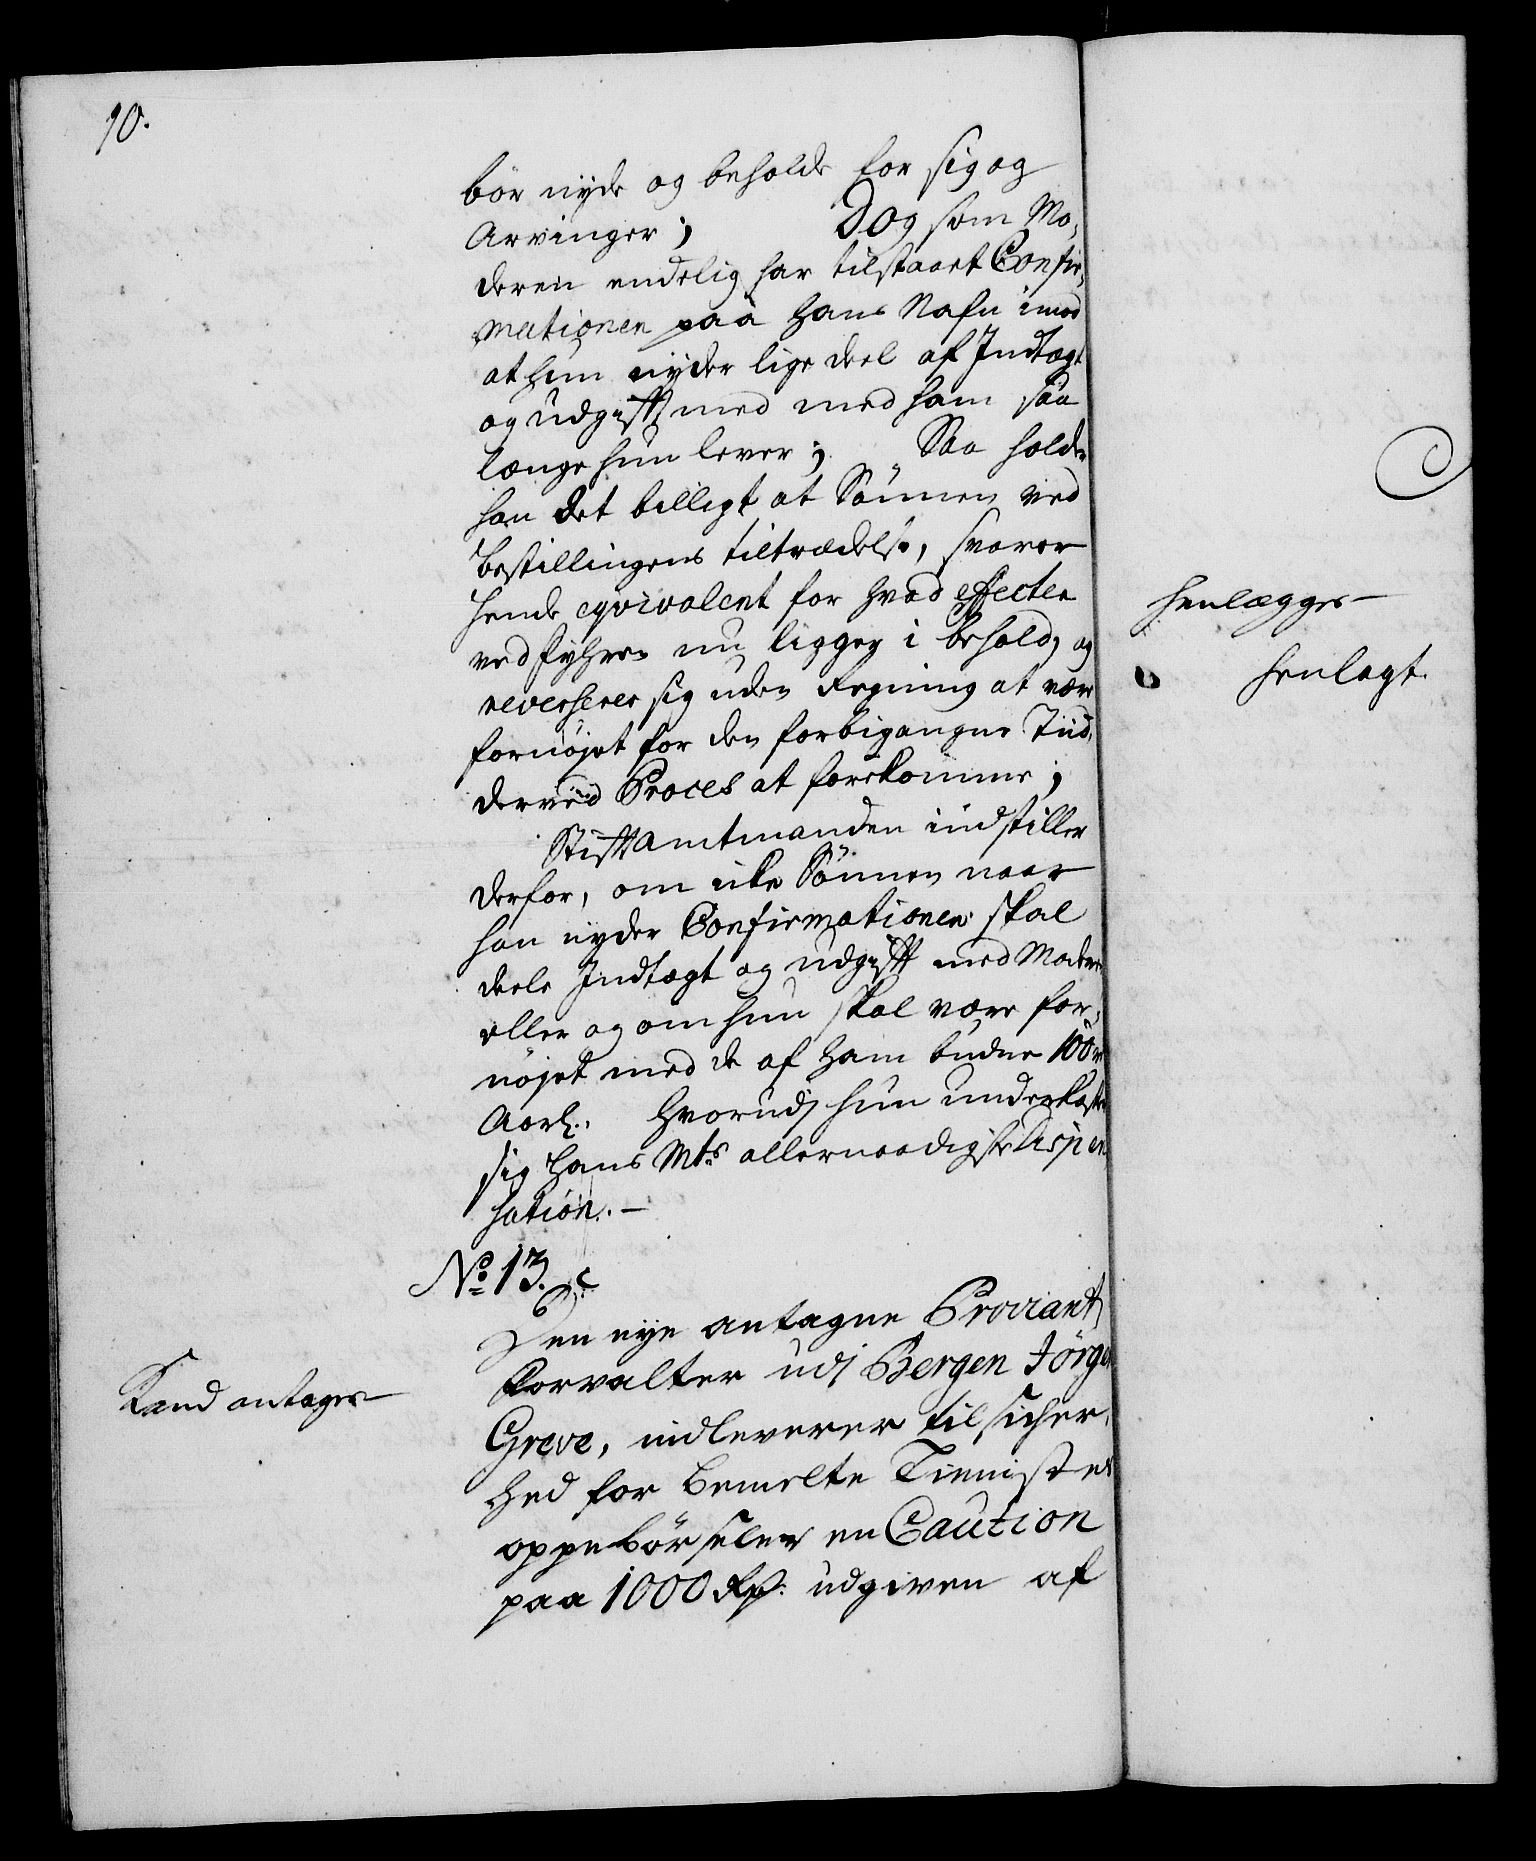 90.
bör nyde og beholde for sig og
Arvinger; Dog som Mo,
deren endelig har tilstaaet Confir,
mationen paa Hans Nafn imod
at hun nyder lige deel af Indtægt
og Udgifft med med ham saa
længe hun lever; Saa holder
han det billigt at Sönnen ved
bestillingens tiltrædelse, svarer
hende eqvivalent for hvad effecter
ved fyhren nu ligger i behold, og
reverserer sig uden Regning at være
fornøjet for den forbigangne Tiid,
derved Proces at forekomme;
Stifftamtmanden indstiller
derfor, om icke Sönnen naar
han nyder Confirmationen skal
deele Indtægt og udgifft med Moderen
eller og om hun skal være for,
nöjet med de af ham budne 100 rd
Aarl. hvorudj hun underkaster
sig Hans Mts allernaadigste Dispen
sation. —
No 13.
Den nye antagne Proviant
Forvalter udj Bergen Jörgen
Greve, indleverer til sicher,
hed for bemelte Tienistes
oppebörseler en Caution
paa 1000 Rdr: udgiven af
Kand antages
Henlægges
henlagt.